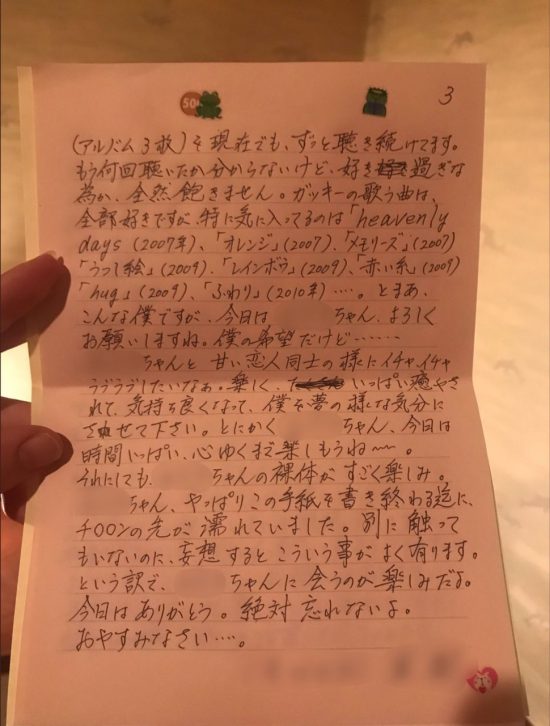 50
3
(アルバム3枚)を現在でも、ずっと聴き続けてます。
もう何回聴いたか分からないけど、好き過ぎな
為か、全然飽きません。ガッキーの歌う曲は、
全部好きですが、特に気に入ってるのは「heavenly
days(2007年)、「オレンジ」(2007)、「メモリーズ」(2007)
「うつし絵」(2009)、「レインボウ」(2009)、「赤い糸」(2009)
「hug」(2009)、「ふわり」(2010年)….。とまあ、
こんな僕ですが、今日は ちゃん、よろしく
お願いしますね。僕の希望だけど……
ちゃんと 甘い恋人同士の様にイチャイチャ
ラブラブしたいなぁ。楽しく、いっぱい癒やさ
れて、気持ち良くなって、僕を夢の様な気分に
させて下さい。とにかく ちゃん、今日は
時間いっぱい、心ゆくまで楽しもうね〜。
それにしても、 ちゃんの裸体がすごく楽しみ。
ちゃん、やっぱりこの手紙を書き終わる迄に、
チ〇〇ンの先が濡れていました。別に触って
もいないのに、妄想するとこういう事がよく有ります。
という訳で、 ちゃんに会うのが楽しみだよ。
今日はありがとう。絶対忘れないよ。
おやすみなさい….。